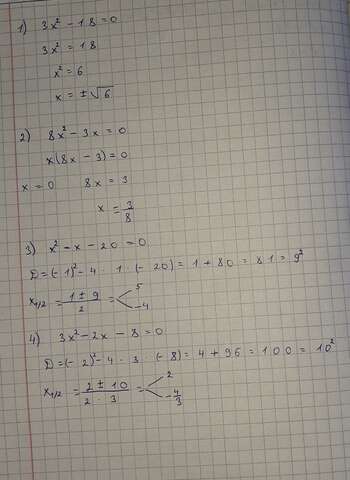 1) 3x² - 18 = 0
3x² = 18
x² = 6
x = ±√6
2) 8x² - 3x = 0
x(8x - 3) = 0
x = 0 8x = 3
x = 3/8
3) x² - x - 20 = 0
D = (-1)² - 4 · 1 · (-20) = 1 + 80 = 81 = 9²
x1/2 = (1 ± 9)/2 = 5 -4
4) 3x² - 2x - 8 = 0
D = (-2)² - 4 · 3 · (-8) = 4 + 96 = 100 = 10²
x1/2 = (2 ± 10)/(2 · 3) = 2 -4/3